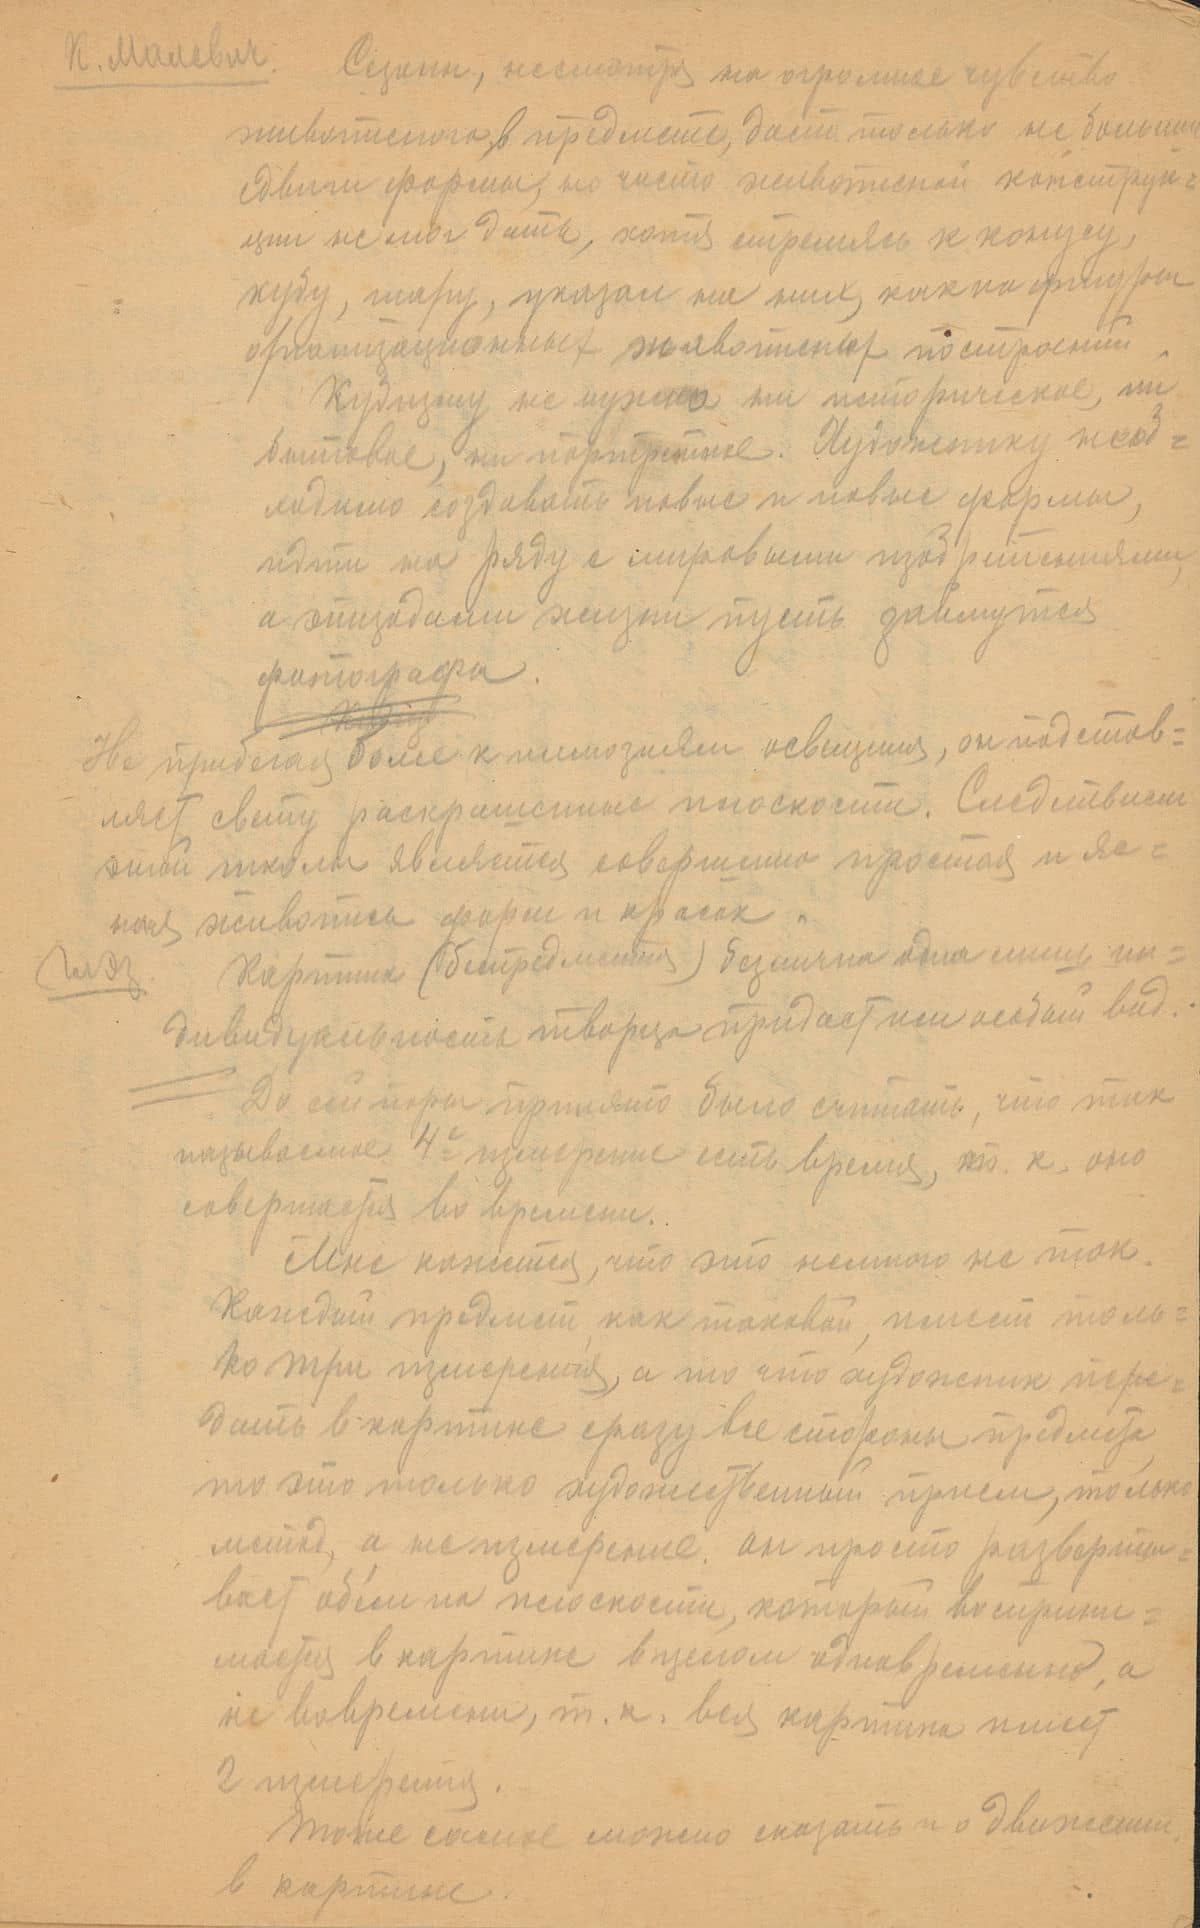 К. Малевич.
Сезанн, несмотря на огромное чувство
живописного в предмете, дает только не большие
сдвиги формы, но чисто живописной конструк=
ции не мог дать, хотя стремясь к конусу,
кубу, шару, указал на них, как на фигуры
организационных живописных построений.
Кубизму не нужно ни историческое, ни
бытовое, ни портретное. Художнику необ=
ходимо создавать новые и новые формы,
идти на ряду с мировыми изобретениями,
а эпизодами жизни пусть займутся
фотографы.
Не прибегая более к иллюзиям освещения, он подстав=
ляет свету раскрашенные плоскости. Следствием
этой школы является совершенно простая и яс=
ная живопись форм и красок.
Глэз.
Картина (беспредметная) безлична одна лишь ин=
дивидуальность творца придает им особый вид.
До сей поры принято было считать, что так
называемое 4е измерение есть время, т. к. оно
совершается во времени.
Мне кажется, что это немного не так.
Каждый предмет, как таковой, имеет толь=
ко три измерения, а то что художник пере=
дать в картине сразу все стороны предмета,
то это только художественный прием, только
метод, а не измерение. он просто развертыв=
вает объем на плоскости, который восприни=
мается в картине в целом одновременно, а
не во времени, т. к. вся картина имеет
2 измерения.
Тоже самое можно сказать и о движении
в картине.